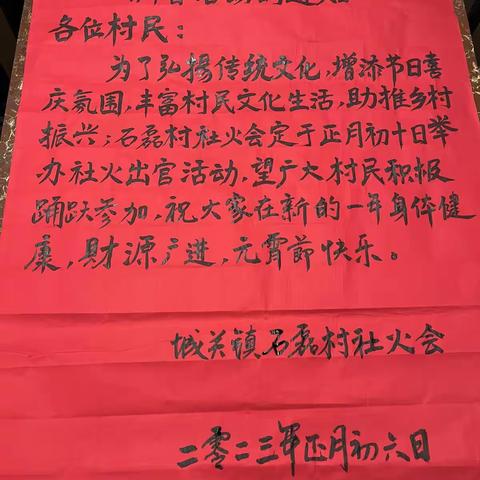 各位村民：
为了弘揚传統文化,增添节日喜
庆氛围,丰富村民文化生活,助推乡村
振兴;石磊村社火会定于正月初十日举
办社火出官活动,望广大村民积极
踊跃参加,祝大家在新的一年身体健
康,財源广进,元霄節快乐。
城关镇石磊村社火会
二零二三年正月初六日